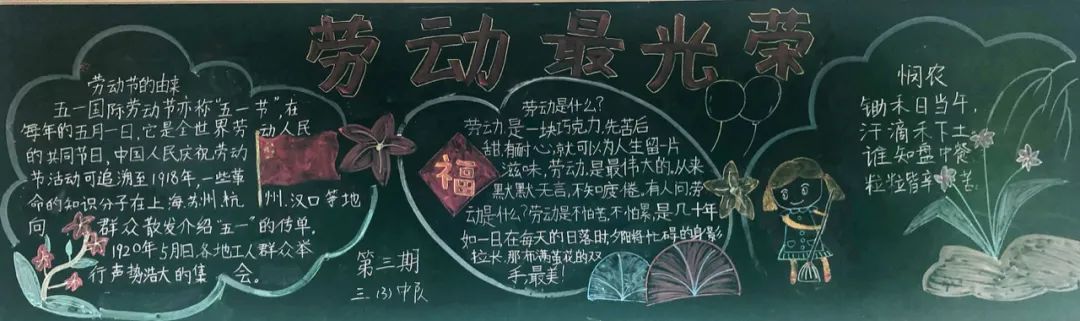 劳动最光荣
劳动节的由来
五一国际劳动节亦称“五一节”,在
每年的五月一日,它是全世界劳动人民
的共同节日,中国人民庆祝劳动
节活动可追溯至1918年,一些革
命的知识分子在上海、苏州、杭州、汉口等地
向群众散发介绍“五一”的传单.
1920年5月1日,各地工人群众举
行声势浩大的集会。
第三期
三.(3)中队
劳动是什么?
劳动,是一块巧克力,先苦后
甜,有耐心,就可以为人生留一片
滋味,劳动,是最伟大的,从来
默默无言,不知疲倦,有人问劳
动是什么?劳动是不怕苦,不怕累,是几十年
如一日在每天的日落时,夕阳将忙碌的身影
拉长,那布满茧花的双
手,最美!
福
悯农
锄禾日当午,
汗滴禾下土
谁知盘中餐
粒粒皆辛苦